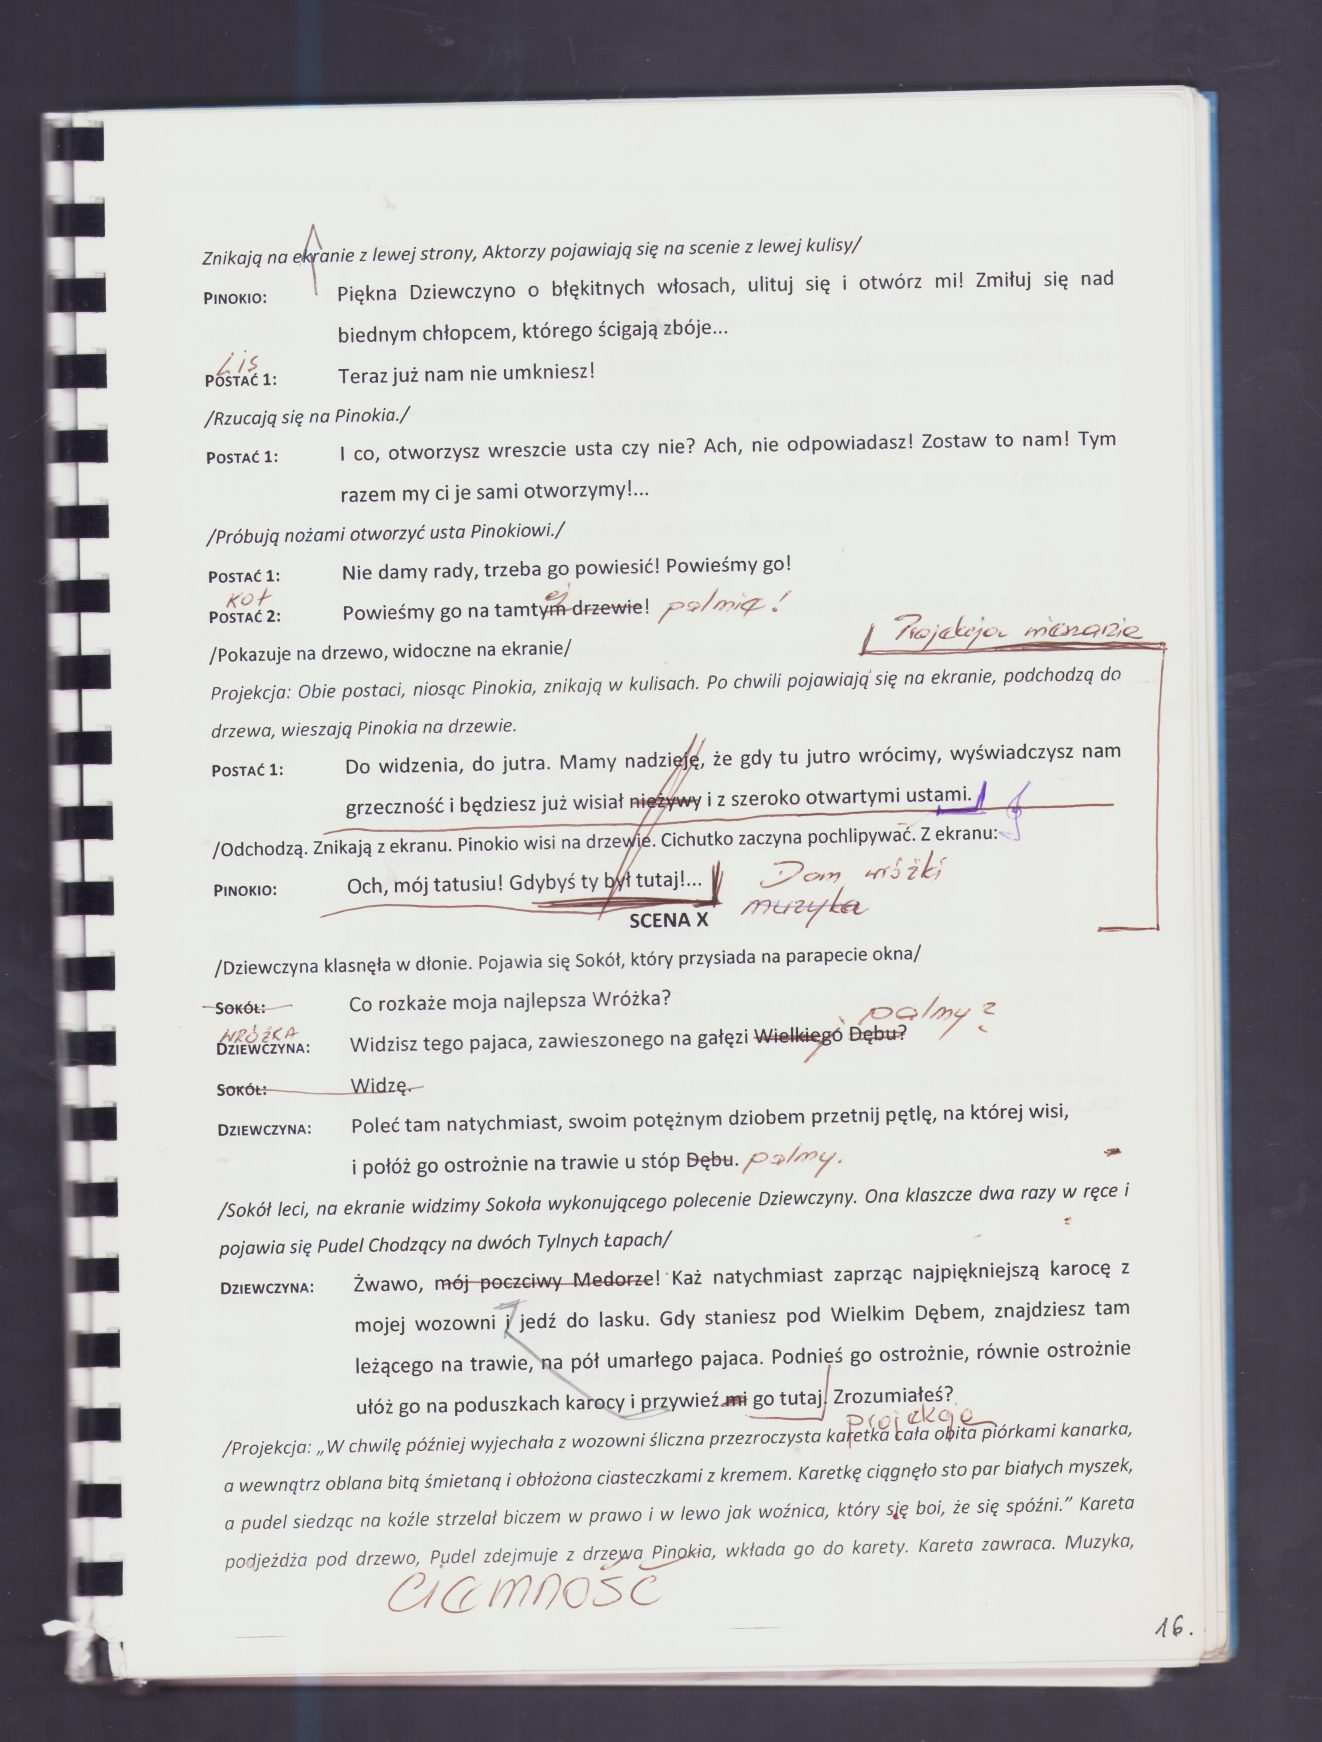 Znikają na ekranie z lewej strony, Aktorzy pojawiają się na scenie z lewej kulisy/
PINOKIO: Piękna Dziewczyno o błękitnych włosach, ulituj się i otwórz mi! Zmiłuj się nad
biednym chłopcem, którego ścigają zbóje...
Lis
POSTAĆ 1: Teraz już nam nie umkniesz!
/Rzucają się na Pinokia./
POSTAĆ 1: I co, otworzysz wreszcie usta czy nie? Ach, nie odpowiadasz! Zostaw to nam! Tym
razem my ci je sami otworzymy!...
/Próbują nożami otworzyć usta Pinokiowi./
POSTAĆ 1: Nie damy rady, trzeba go powiesić! Powieśmy go!
KOT ej
POSTAĆ 2: Powieśmy go na tamtym drzewie! palmie!
Projekcja
/Pokazuje na drzewo, widoczne na ekranie/
Projekcja: Obie postaci, niosąc Pinokia, znikają w kulisach. Po chwili pojawiają się na ekranie, podchodzą do
drzewa, wieszają Pinokia na drzewie.
POSTAĆ 1: Do widzenia, do jutra. Mamy nadzieję, że gdy tu jutro wrócimy, wyświadczysz nam
grzeczność i będziesz już wisiał nieżywy i z szeroko otwartymi ustami.
/Odchodzą. Znikają z ekranu. Pinokio wisi na drzewie. Cichutko zaczyna pochlipywać. Z ekranu:
PINOKIO: Och, mój tatusiu! Gdybyś ty był tutaj!... Dom wróżki
muzyka
SCENA X
/Dziewczyna klasnęła w dłonie. Pojawia się Sokół, który przysiada na parapecie okna/
SOKÓŁ: Co rozkaże moja najlepsza Wróżka?
WRÓŻKA palmy?
DZIEWCZYNA: Widzisz tego pajaca, zawieszonego na gałęzi Wielkiego Dębu?
SOKÓŁ: Widzę.
DZIEWCZYNA: Poleć tam natychmiast, swoim potężnym dziobem przetnij pętlę, na której wisi,
i połóż go ostrożnie na trawie u stóp Dębu. palmy.
/Sokół leci, na ekranie widzimy Sokoła wykonującego polecenie Dziewczyny. Ona klaszcze dwa razy w ręce i
pojawia się Pudel Chodzący na dwóch Tylnych Łapach/
DZIEWCZYNA: Żwawo, mój poczciwy Medorze! Każ natychmiast zaprząc najpiękniejszą karocę z
mojej wozowni i jedź do lasku. Gdy staniesz pod Wielkim Dębem, znajdziesz tam
leżącego na trawie, na pół umarłego pajaca. Podnieś go ostrożnie, równie ostrożnie
ułóż go na poduszkach karocy i przywieź mi go tutaj. Zrozumiałeś?
projekcja
/Projekcja: „W chwilę później wyjechała z wozowni śliczna przezroczysta karetka cała obita piórkami kanarka,
a wewnątrz oblana bitą śmietaną i obłożona ciasteczkami z kremem. Karetkę ciągnęło sto par białych myszek,
a pudel siedząc na koźle strzelał biczem w prawo i w lewo jak woźnica, który się boi, że się spóźni.” Kareta
podjeżdża pod drzewo, Pudel zdejmuje z drzewa Pinokia, wkłada go do karety. Kareta zawraca. Muzyka,
ciemność
16.